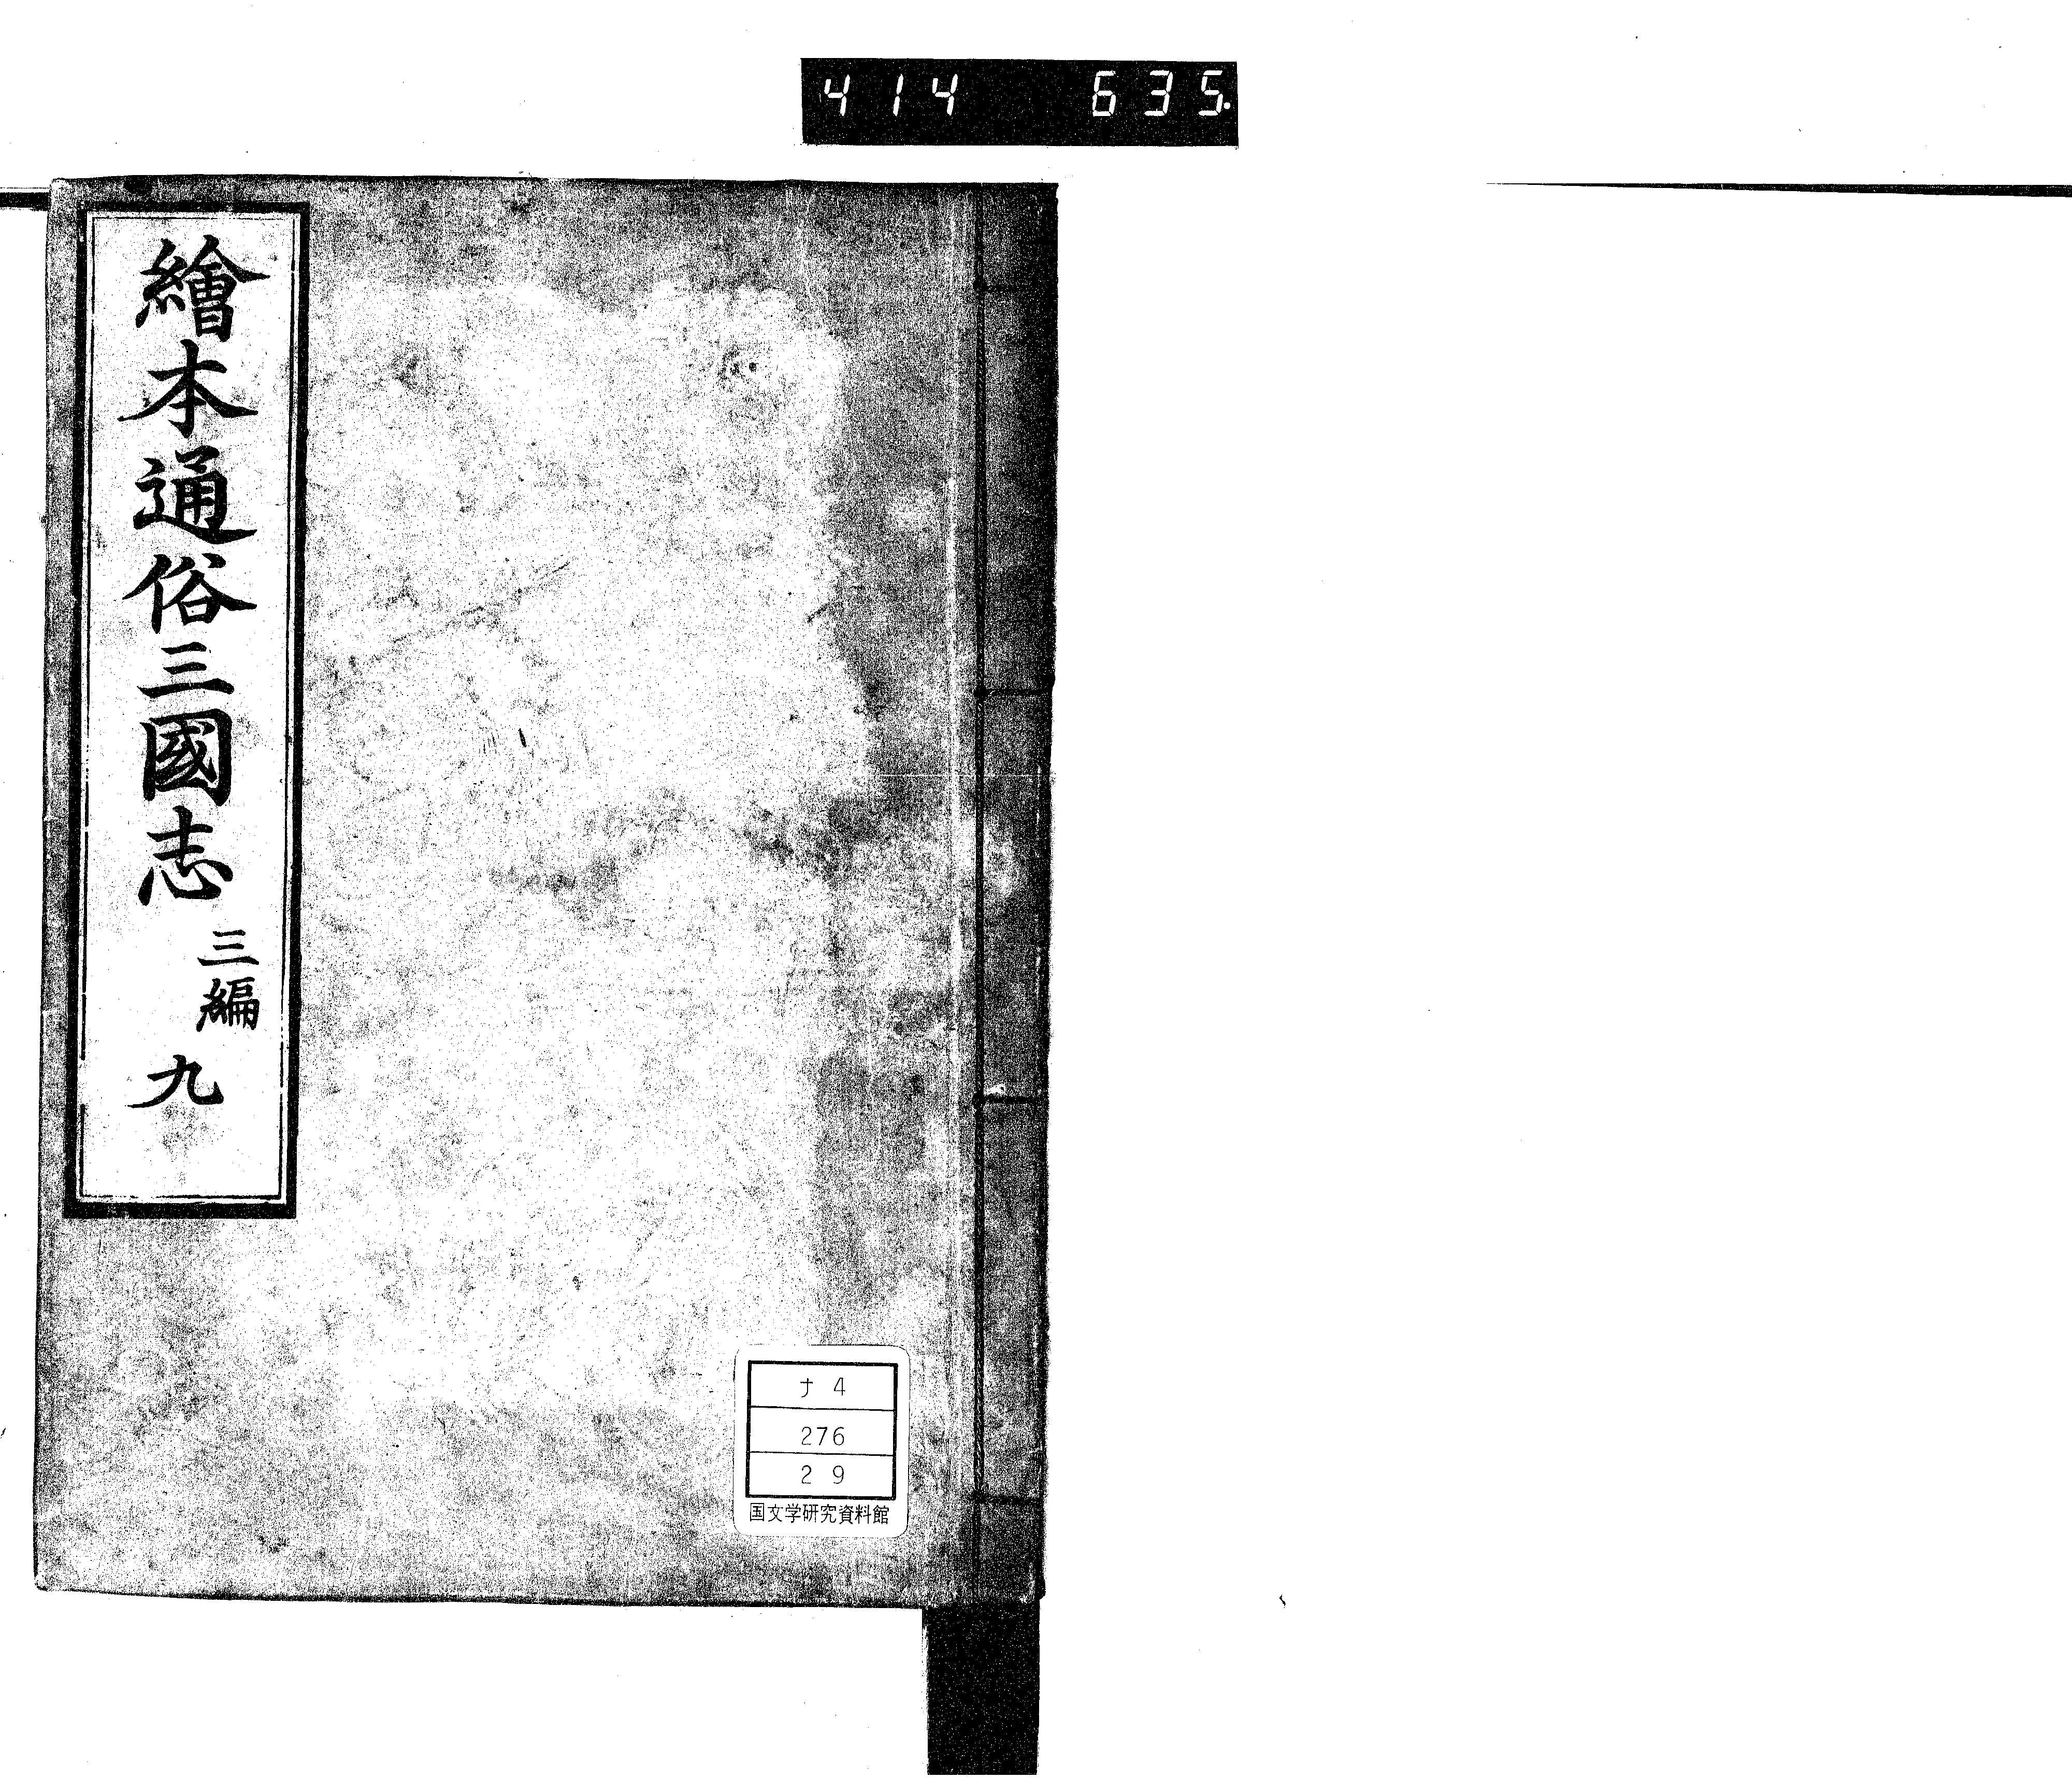 414 635
繪本通俗三國志
三編
九
ナ 4
276
2 9
国文学研究資料館